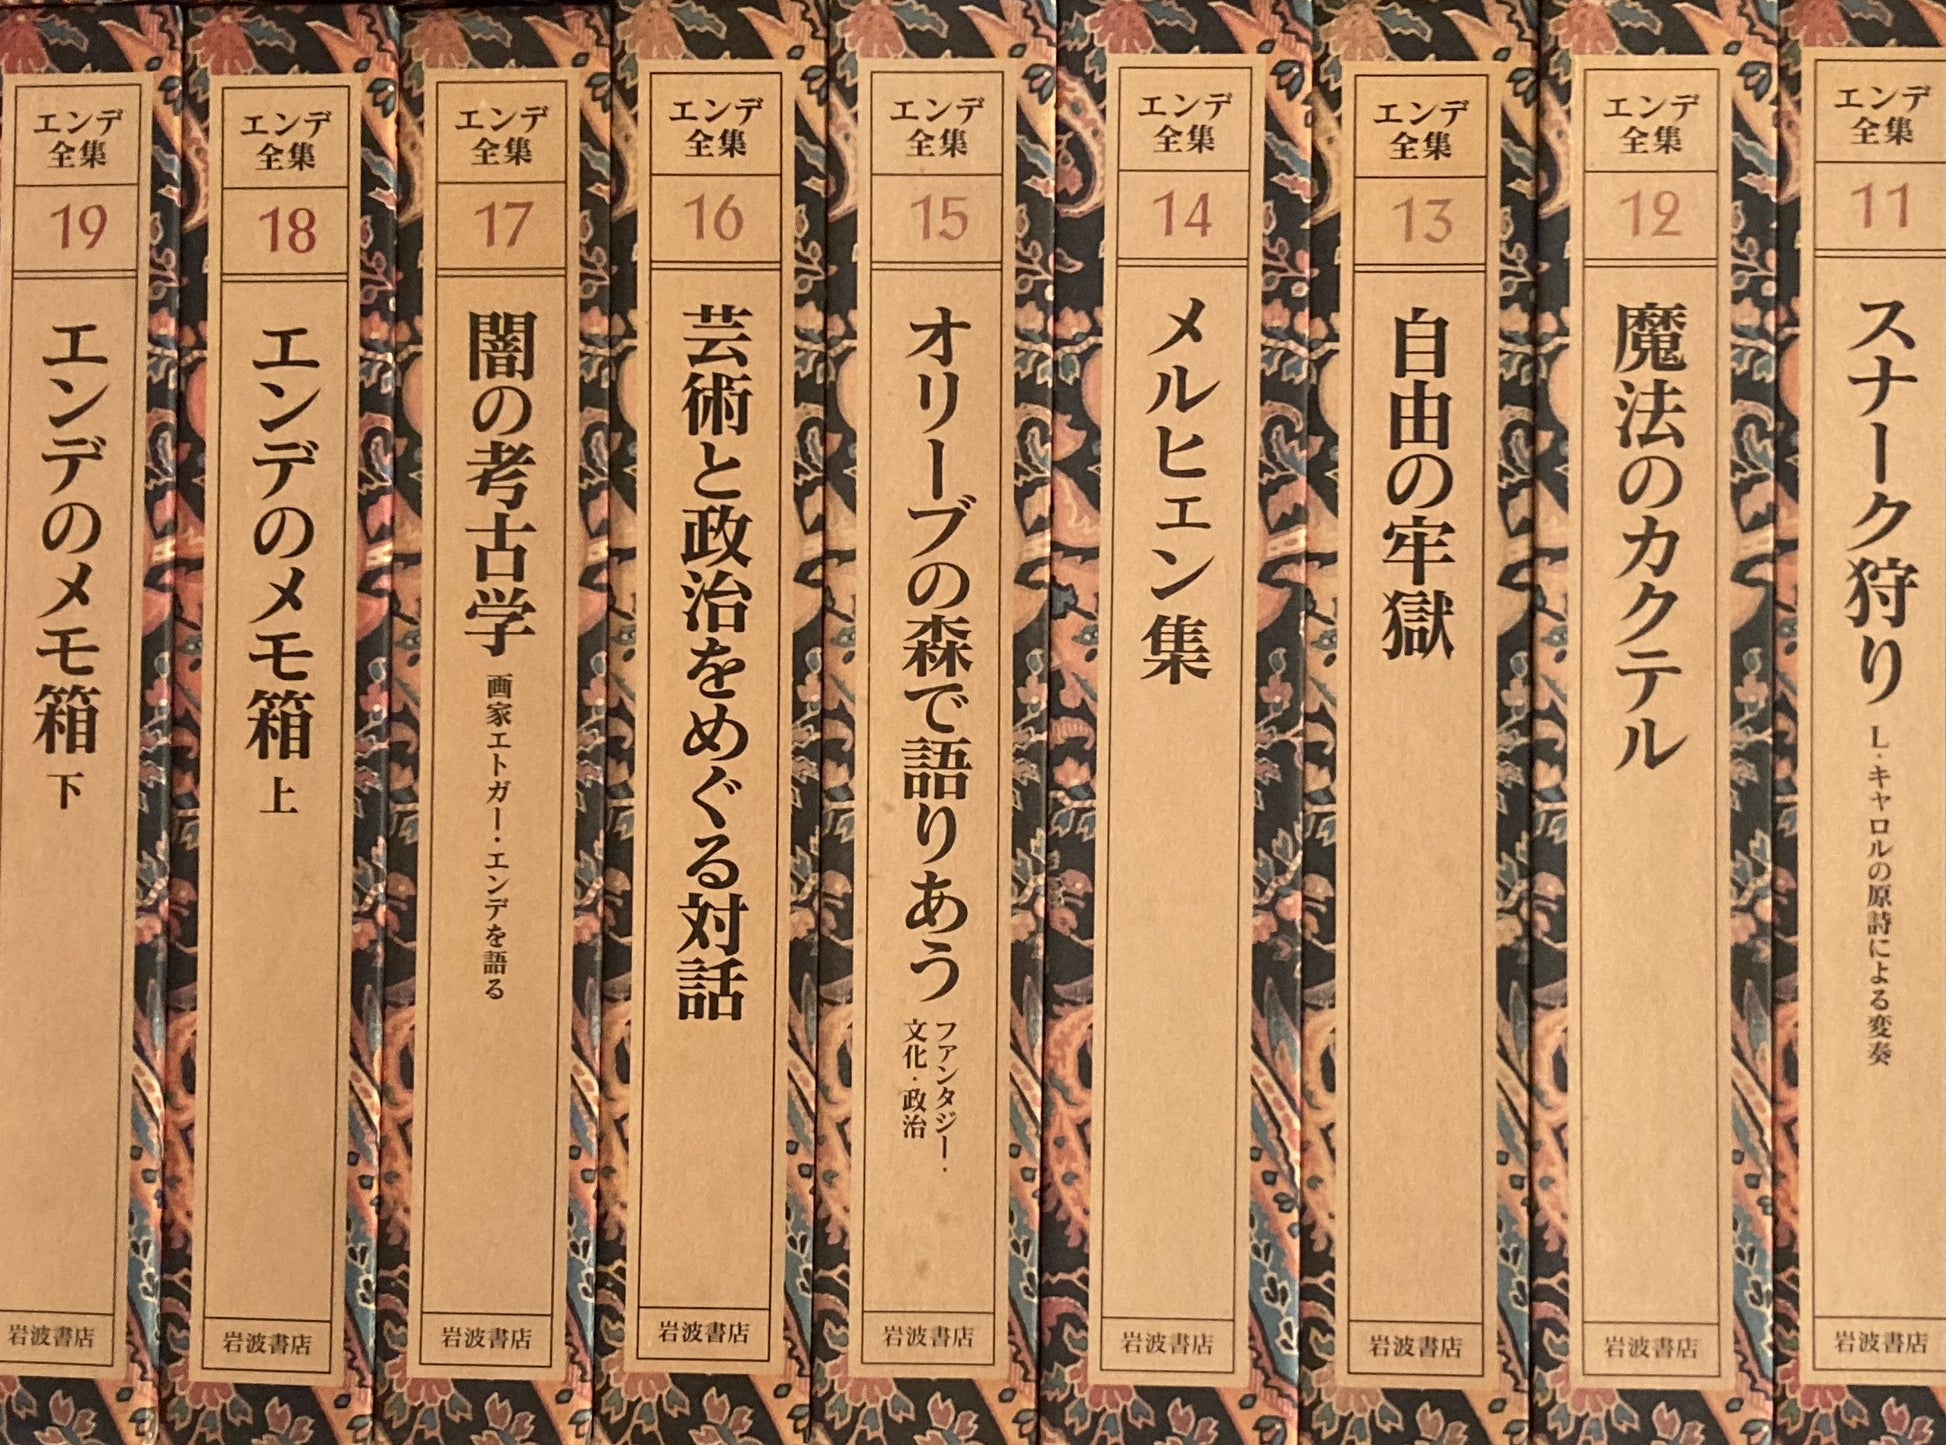 エンデ
全集
19
エンデのメモ箱 下
岩波書店
エンデ
全集
18
エンデのメモ箱 上
岩波書店
エンデ
全集
17
闇の考古学 画家エトガー・エンデを語る
岩波書店
エンデ
全集
16
芸術と政治をめぐる対話
岩波書店
エンデ
全集
15
オリーブの森で語りあう
ファンタジー・
文化・政治
岩波書店
エンデ
全集
14
メルヒェン集
岩波書店
エンデ
全集
13
自由の牢獄
岩波書店
エンデ
全集
12
魔法のカクテル
岩波書店
エンデ
全集
11
スナーク狩り L・キャロルの原詩による変奏
岩波書店